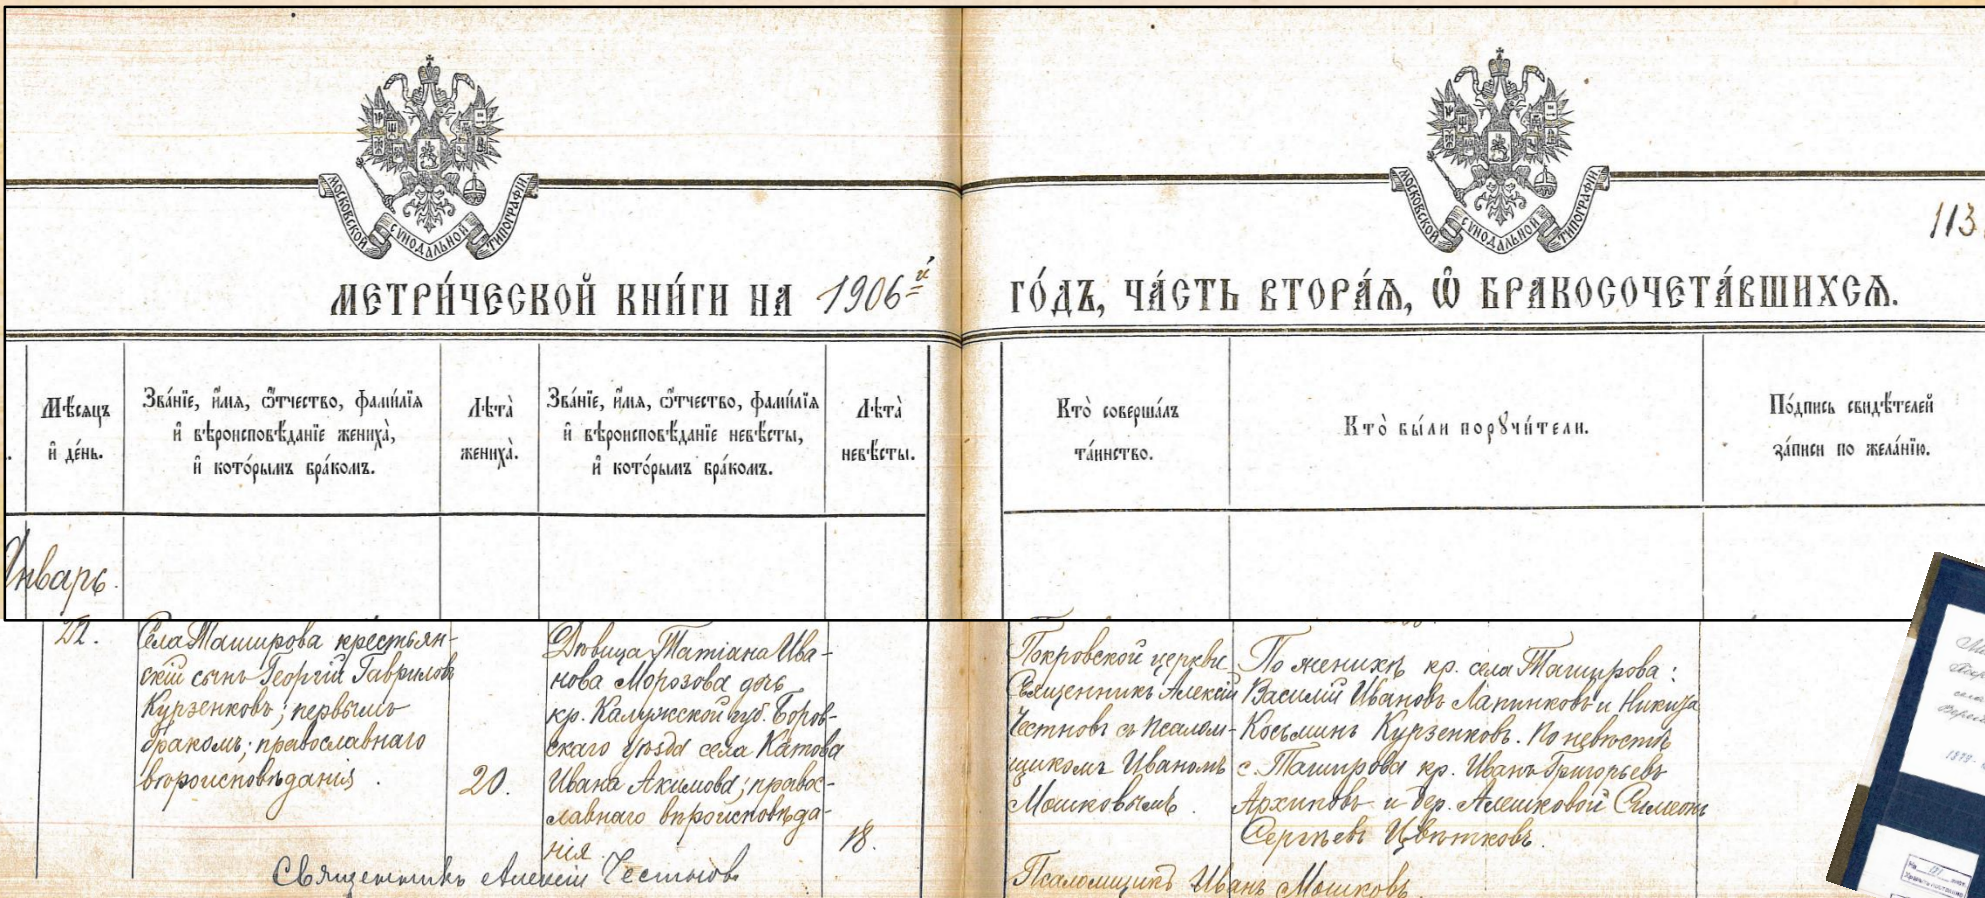 МОСКОВСКОЙ СѴНОДАЛЬНОЙ ТИПОГРАФІИ.
МОСКОВСКОЙ СѴНОДАЛЬНОЙ ТИПОГРАФІИ.
113
МЕТРИ́ЧЕСКОЙ КНИ́ГИ НА 1906й ГО́ДЪ, ЧА́СТЬ ВТОРА́Ѧ, Ѽ БРАКОСОЧЕТА́ВШИХСѦ.
Мѣ́сяцъ
и҆ де́нь.
Зва́нїе, и҆́мя, ѻ҆́тчество, фами́лїя
и҆ вѣроисповѣ́данїе жениха̀,
и҆ кото́рымъ бра́комъ.
Лѣта̀
жениха̀.
Зва́нїе, и҆́мя, ѻ҆́тчество, фами́лїя
и҆ вѣроисповѣ́данїе невѣ́сты,
и҆ кото́рымъ бра́комъ.
Лѣта̀
невѣ́сты.
Кто̀ соверша́лъ
та́инство.
Кто̀ бы́ли порꙋчи́тели.
По́дпись свидѣ́телей
за́писи по жела́нїю.
Январь.
22.
Села Таширова крестьян-
скій сынъ Георгій Гавриловъ
Курзенковъ; первымъ
бракомъ; православнаго
вѣроисповѣданія.
20.
Дѣвица Татіана Ива-
нова Морозова дочь
кр. Калужской губ. Боров-
скаго уѣзда села Катова
Ивана Акимова; правос-
лавнаго вѣроисповѣда-
нія.
18.
Покровской церкви
Священникъ Алексій
Честновъ съ псалом-
щикомъ Иваномъ
Мошковымъ.
По женихѣ кр. села Таширова:
Василій Ивановъ Лапинковъ и Никита
Косьминъ Курзенковъ. По невѣстѣ
с. Таширова кр. Иванъ Григорьевъ
Архиповъ и дер. Алешковой Симеонъ
Сергѣевъ Цвѣтковъ.
Священникъ Алексій Честновъ
Псаломщикъ Иванъ Мошковъ.